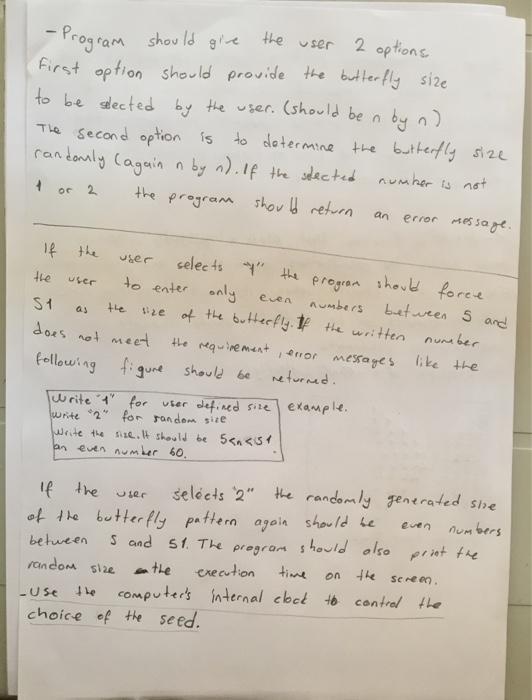 - Program should give the user 2 options
First option should provide the butterfly size
to be selected by the user. (should be n by n)
The second option is to determine the butterfly size
randomly (again n by n). If the selected number is not
1 or 2 the program should return an error message.
If the user selects "1" the program should force
the user to enter only even numbers between 5 and
51 as the size of the butterfly. If the written number
does not meet the requirement, error messages like the
following figure should be returned.
Write "1" for user defined size example.
Write "2" for random size
Write the size. It should be 5<n<51
an even number 60.
If the user selects "2" the randomly generated size
of the butterfly pattern again should be even numbers
between 5 and 51. The program should also print the
random size the execution time on the screen.
- Use the computer's internal clock to control the
choice of the seed.